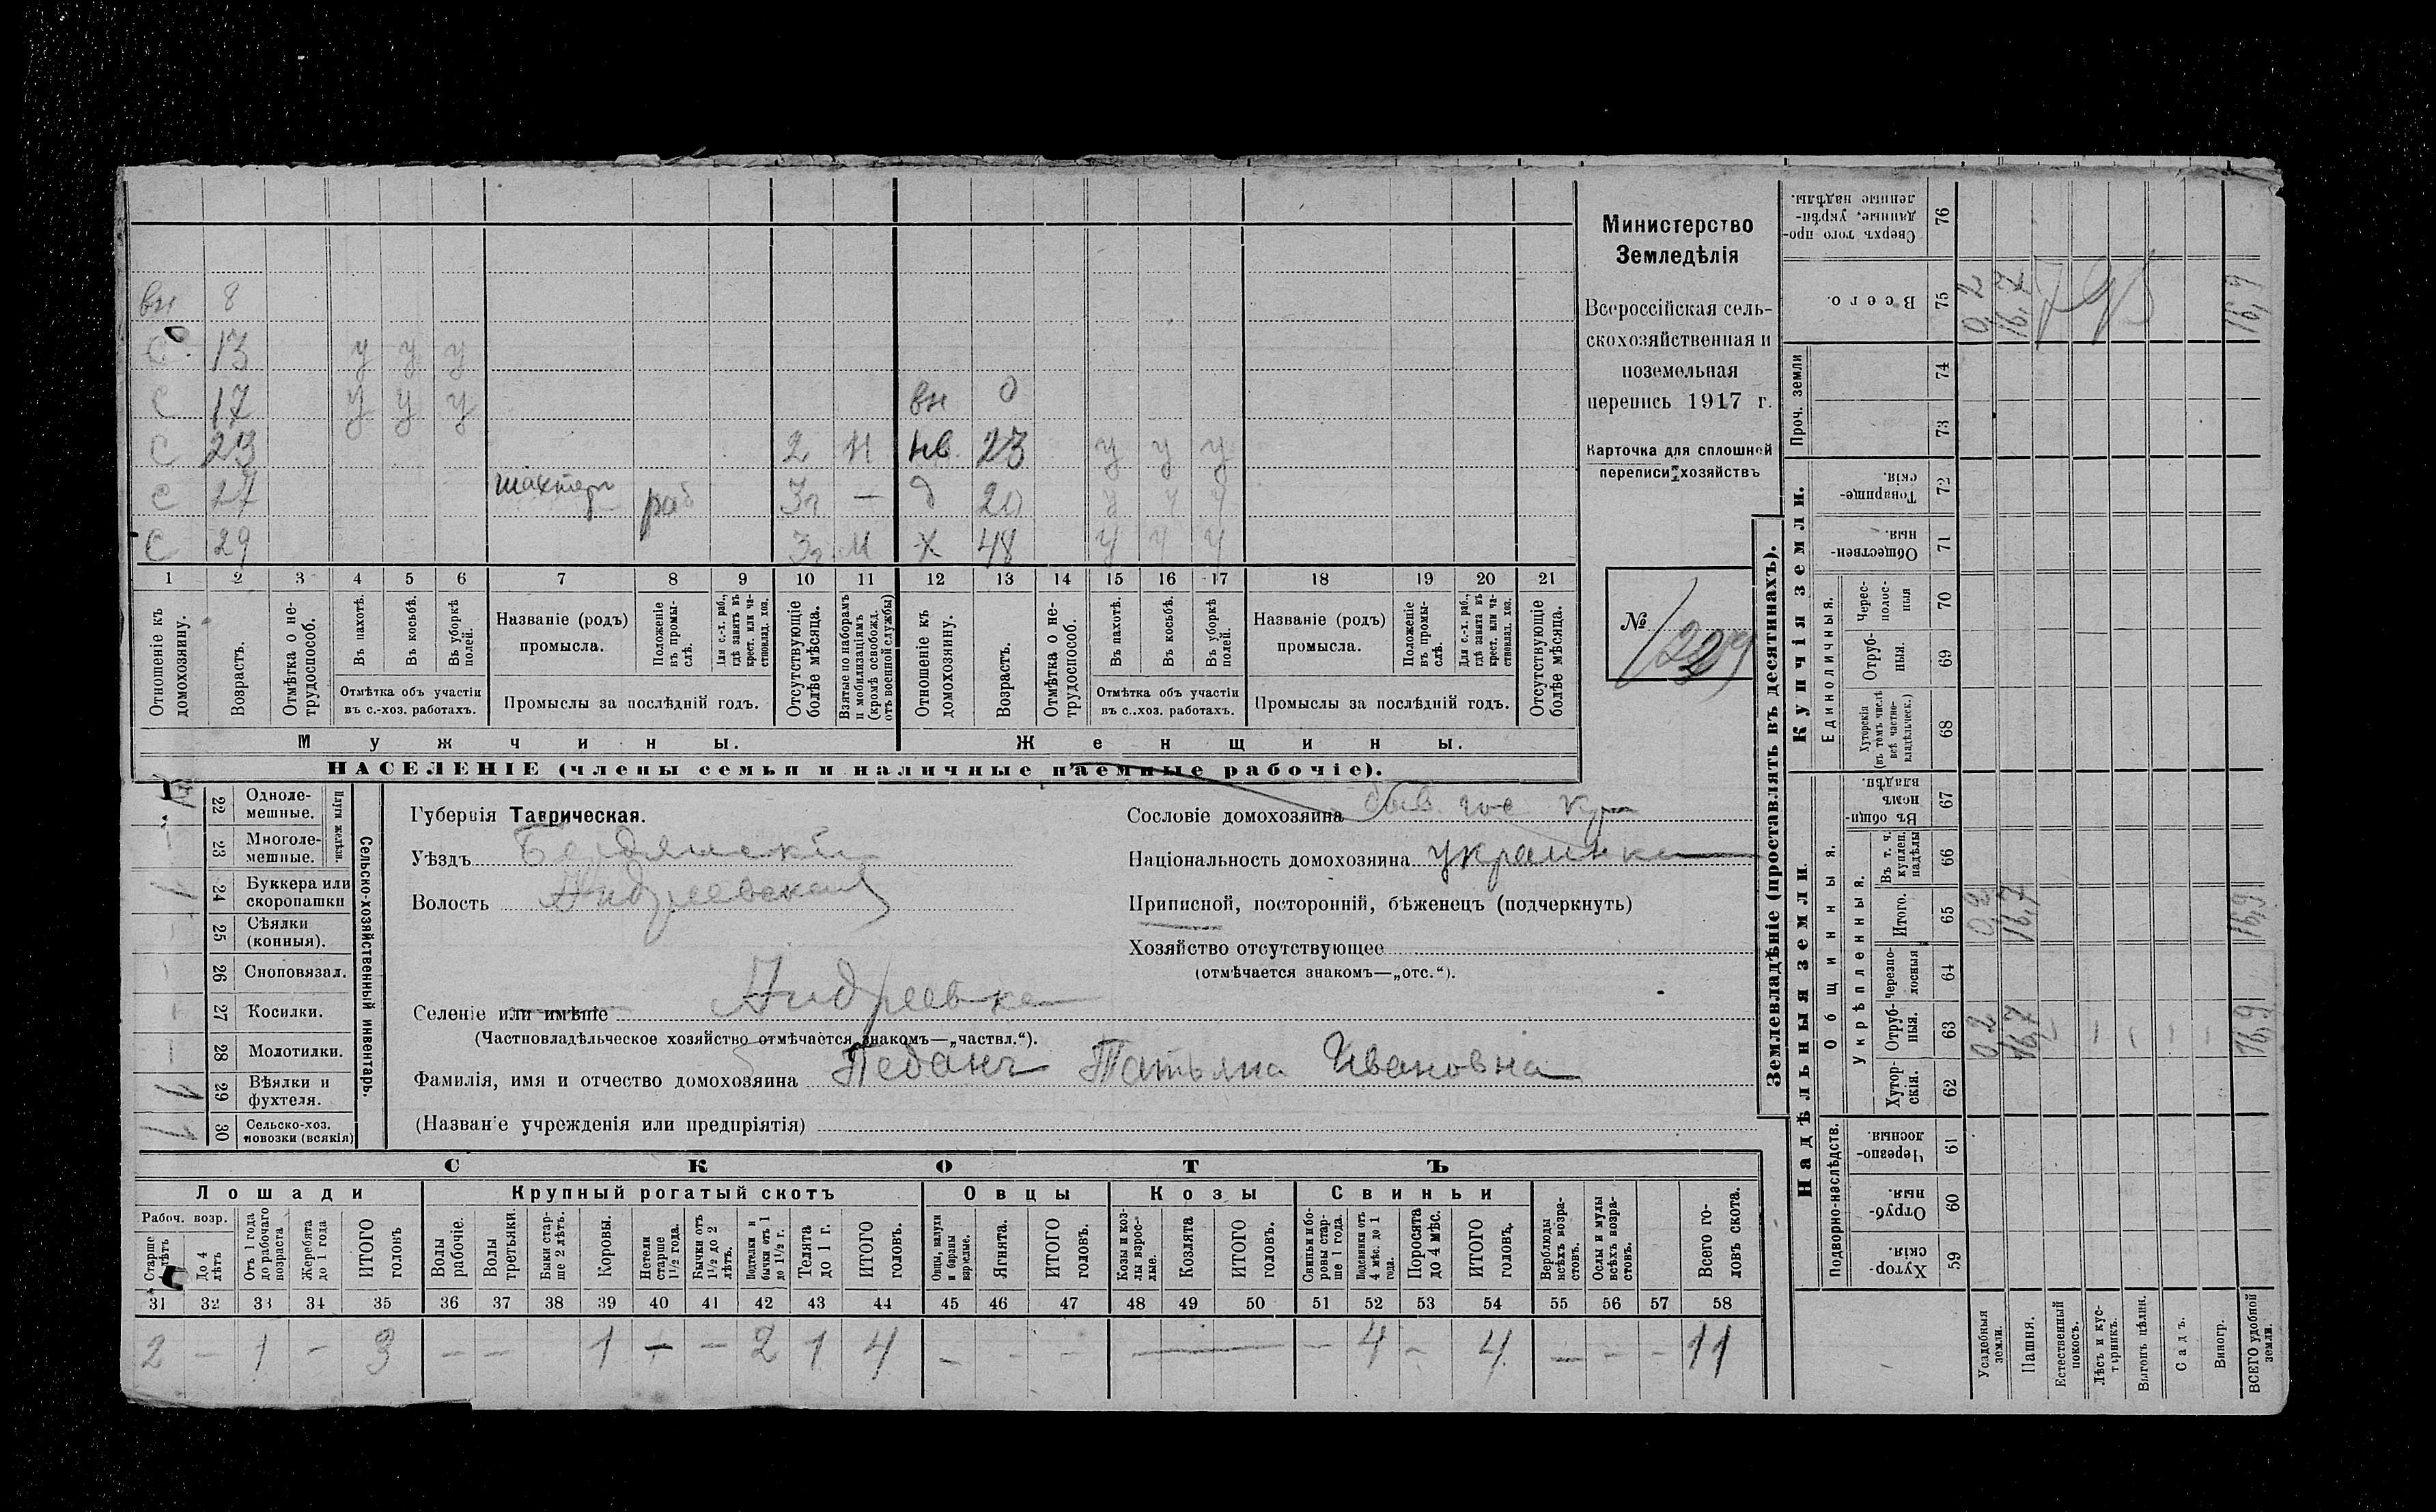 вн 8
С 13 у у у
С 17 у у у вн 0
С 23 2 М нв 23 у у у
С 27 шахтер раб 3г — д 20 у у у
С 29 3г М х 48 у у у
1 2 3 4 5 6 7 8 9 10 11 12 13 14 15 16 17 18 19 20 21
Отношеніе къ домохозяину.
Возрастъ.
Отмѣтка о не-трудоспособ.
Въ пахотѣ.
Въ косьбѣ.
Въ уборкѣ полей.
Отмѣтка объ участіи въ с.-хоз. работахъ.
Названіе (родъ) промысла.
Положеніе въ промы-слѣ.
Для с.-х. раб., гдѣ занятъ въ крест. или ча-стновлад. хоз.
Промыслы за послѣдній годъ.
Отсутствующіе болѣе мѣсяца.
Взятые по наборамъ и мобилизаціямъ (кромѣ освобожд. отъ военной службы)
Отношеніе къ домохозяину.
Возрастъ.
Отмѣтка о не-трудоспособ.
Въ пахотѣ.
Въ косьбѣ.
Въ уборкѣ полей.
Отмѣтка объ участіи въ с..хоз. работахъ.
Названіе (родъ) промысла.
Положеніе въ промы-слѣ.
Для с.-х. раб., гдѣ занята въ крест. или ча-стновлад. хоз.
Промыслы за послѣдній годъ.
Отсутствующіе болѣе мѣсяца.
Мужчины.
Женщины.
НАСЕЛЕНІЕ (члены семьи и наличные наемные рабочіе).
Министерство
Земледѣлія
Всероссійская сель-
скохозяйственная и
поземельная
перепись 1917 г.
Карточка для сплошной
переписи хозяйствъ
№
Сельско-хозяйственный инвентарь.
Плуги желѣзн.
22 Одноле-мешные.
23 Многоле-мешные.
24 Буккера или скоропашки 1
25 Сѣялки (конныя).
26 Сноповязал.
27 Косилки.
28 Молотилки.
29 Вѣялки и фухтеля. 1
30 Сельско-хоз. повозки (всякія) 1
Губернія Таврическая.
Уѣздъ Бердянскій
Волость Андреевская
Селеніе или имѣніе Андреевка
(Частновладѣльческое хозяйство отмѣчается знакомъ—„частвл.“).
Фамилія, имя и отчество домохозяина Педанъ Татьяна Ивановна
(Названіе учрежденія или предпріятія)
Сословіе домохозяина быв. гос. кр
Національность домохозяина украинка
Приписной, посторонній, бѣженецъ (подчеркнуть)
Хозяйство отсутствующее
(отмѣчается знакомъ—„отс.“).
СКОТЪ
Лошади
Рабоч. возр.
Старше лѣтъ
До 4 лѣтъ
Отъ 1 года до рабочаго возраста
Жеребята до 1 года
ИТОГО головъ
Крупный рогатый скотъ
Волы рабочіе.
Волы третьяки.
Быки стар-ше 2 лѣтъ.
Коровы.
Нетели старше 1 1/2 года.
Бычки отъ 1 1/2 до 2 лѣтъ.
Подтелки и бычки отъ 1 до 1 1/2 г.
Телята до 1 г.
ИТОГО головъ.
Овцы
Овцы, валухи и бараны взрослые.
Ягнята.
ИТОГО головъ.
Козы
Козы и коз-лы взрос-лые.
Козлята
ИТОГО головъ.
Свиньи
Свиньи и бо-ровы стар-ше 1 года.
Подсвинки отъ 4 мѣс. до 1 года.
Поросята до 4 мѣс.
ИТОГО головъ.
Верблюды всѣхъ возра-стовъ.
Ослы и мулы всѣхъ возра-стовъ.
Всего го-ловъ скота.
31 32 33 34 35 36 37 38 39 40 41 42 43 44 45 46 47 48 49 50 51 52 53 54 55 56 57 58
2 — 1 — 3 — — 1 — — 2 1 4 — — — — — 4 — 4 — — — 11
Землевладѣніе (проставлять въ десятинахъ).
Надѣльныя земли.
Подворно-наслѣдств.
Хутор-скія. 59
Отруб-ныя. 60
Черезпо-лосныя. 61
Общинныя.
Укрѣпленныя.
Хутор-скія. 62
Отруб-ныя. 63
Черезпо-лосныя 64
Итого. 65
Въ т. ч. куплен. надѣлы 66
Въ общи-номъ владѣн. 67
Купчія земли.
Единоличныя.
Хуторскія (въ томъ числѣ всѣ частно-владѣльческ.) 68
Отруб-ныя. 69
Черес-полос-ныя 70
Обществен-ныя. 71
Товарище-скія. 72
Проч. земли
73 74
Всего. 75
Сверхъ того про-данные, укрѣп-ленные надѣлы. 76
Усадебныя земли. 0,2 0,2 0,2
Пашня. 16,7 16,7 16,7
Естественный покосъ.
Лѣсъ и кус-тарникъ.
Выгонъ цѣлин.
Садъ.
Виногр.
ВСЕГО удобной земли. 16,9 16,9 16,9